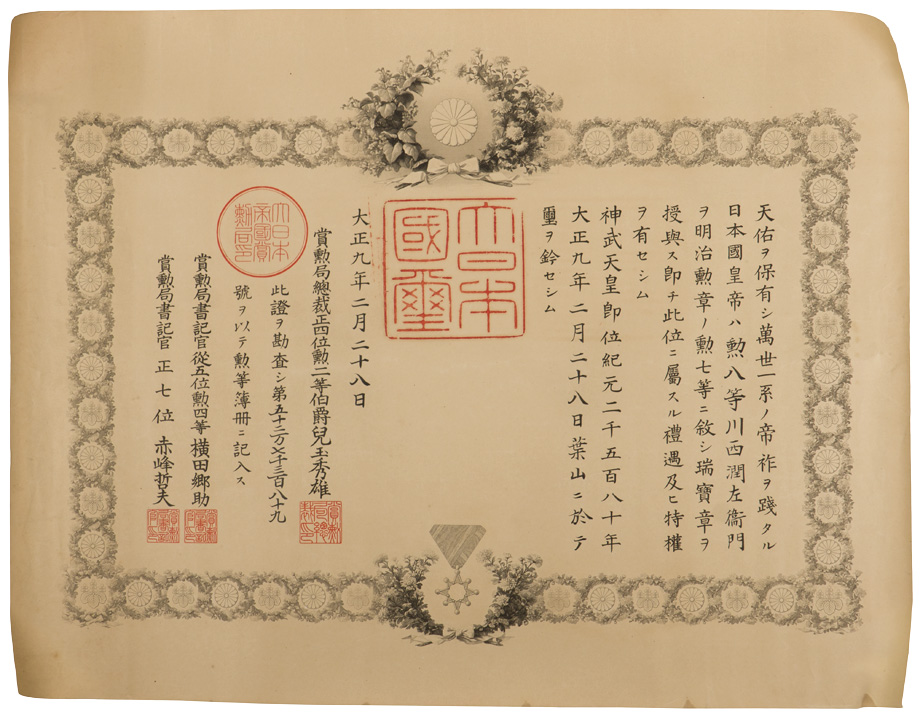 天佑ヲ保有シ萬世一系ノ帝祚ヲ踐タル
日本國皇帝ハ勲八等川西潤左衞門
ヲ明治勲章ノ勲七等ニ敘シ瑞寶章ヲ
授與ス即チ此位ニ屬スル禮遇及ヒ特權
ヲ有セシム
神武天皇即位紀元二千五百八十年
大正九年二月二十八日葉山ニ於テ
璽ヲ鈐セシム
大日本國璽
大正九年二月二十八日
賞勲局總裁正四位勲二等伯爵兒玉秀雄
此證ヲ勘査シ第五十三万七千三百八十九
號ヲ以テ勲等簿册ニ記入ス
大日本帝國賞勲局印
賞勲局書記官從五位勲四等横田郷助
賞勲局書記官正七位赤峰哲夫